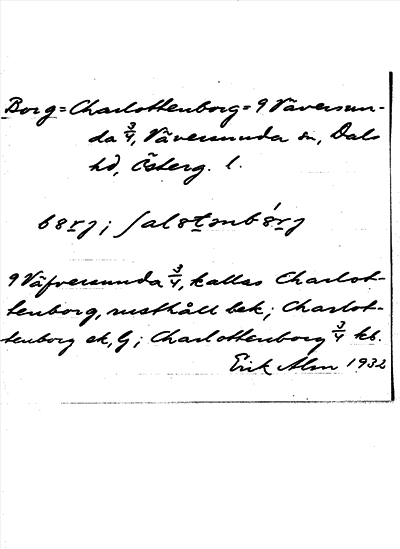 Borg = Charlottenborg = 9 Väversun-
da 3/4, Väversunda sn, Dals
hd, Österg. l.
9 Väfversunda 3/4, kallas Charlot-
tenborg, rusthåll bek; Charlot-
tenborg ek, G; Charlottenborg 3/4 kb.
Erik Alm 1932